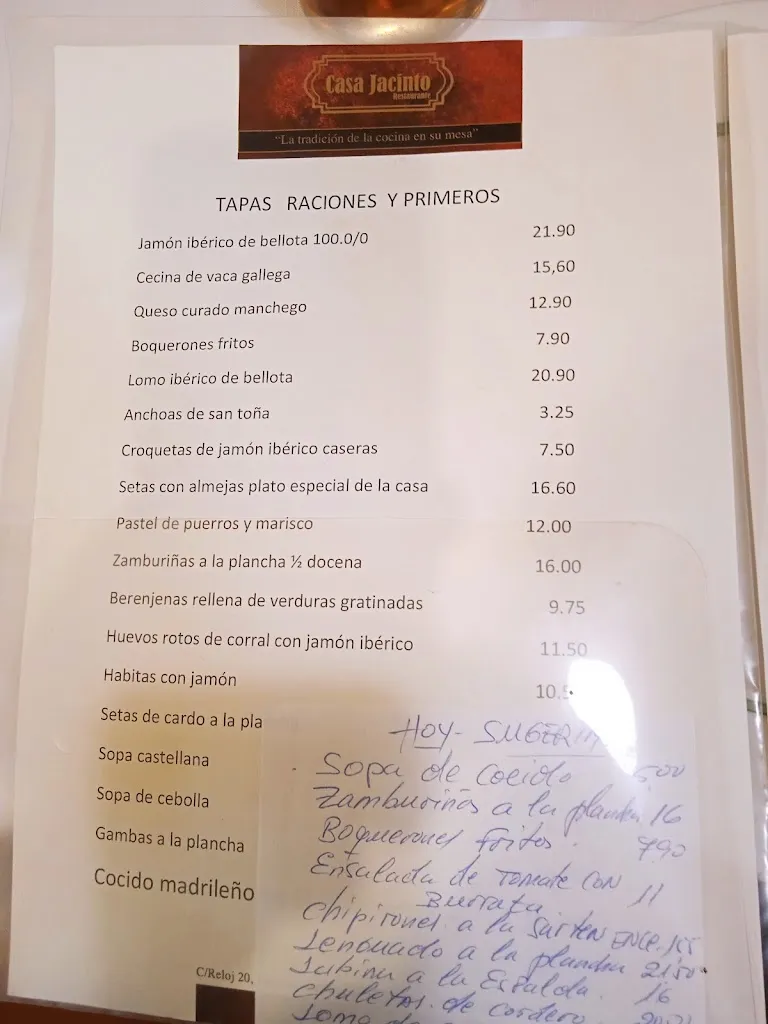 Casa Jacinto
Restaurante
"La tradición de la cocina en su mesa"
TAPAS RACIONES Y PRIMEROS
Jamón ibérico de bellota 100.0/0 21.90
Cecina de vaca gallega 15,60
Queso curado manchego 12.90
Boquerones fritos 7.90
Lomo ibérico de bellota 20.90
Anchoas de san toña 3.25
Croquetas de jamón ibérico caseras 7.50
Setas con almejas plato especial de la casa 16.60
Pastel de puerros y marisco 12.00
Zamburiñas a la plancha ½ docena 16.00
Berenjenas rellena de verduras gratinadas 9.75
Huevos rotos de corral con jamón ibérico 11.50
Habitas con jamón 10.
Setas de cardo a la pla
Sopa castellana
Sopa de cebolla
Gambas a la plancha
Cocido madrileño
C/Reloj 20,
HOY- SUGERI
Sopa de cocido 500
Zamburiñas a la plancha 16
Boquerones fritos. 790
Ensalada de Tomate CON 11
Burrata
Chipirones a la SARTEN ENCE.
Lenguado a la plancha 2150
a la Espalda. 16
Chuletas de cordero
Lomo de